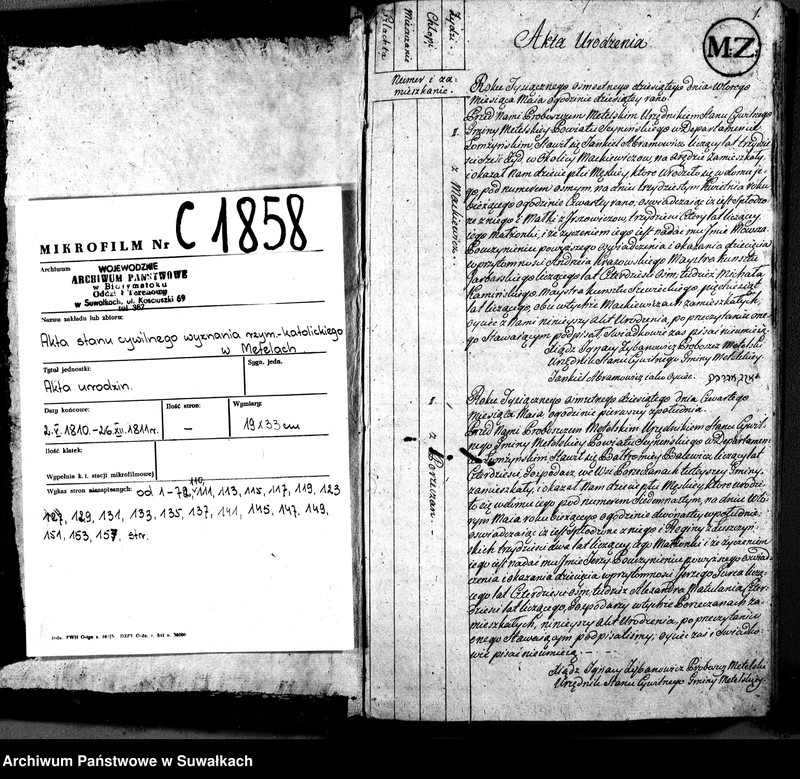 MIKROFILM Nr C 1858
Archiwum
WOJEWODZKIE
ARCHIWUM PAŃSTWOWE
w Białymstoku
Oddział Terenowy
w Suwałkach, ul. Kościuszki 69
tel. 362
Nazwa zakładu lub zbioru:
Akta stanu cywilnego wyznania rzym.-katolickiego
w Metelach
Tytuł jednostki:
Sygn. jedn.
Akta urodzin.
Daty końcowe:
Ilość stron:
Wymiary:
2.V.1810-26.XII.1811r.
—
19x33cm
Ilość klatek:
Wypełnia k. t. stacji mikrofilmowej
Wykaz stron niezapisanych: od 1-79, 110, 111, 113, 115, 117, 119, 123
127, 129, 131, 133, 135, 137, 141, 145, 147, 149,
151, 153, 157, str.
Żydzi.
Chłopi
Mieszczanie
Szlachta
Numer i za-
mieszkanie.
1.
Akta Urodzenia
M.Z.
1. z Mackiewicz.
Roku Tysiącznego osmsetnego dziesiątego dnia wtorego
Miesiąca Maia o godzinie dziesiątey rano.
Przed Nami Proboszczem Metelskim Urzędnikiem Stanu Cywilnego
Gminy Metelskiey Powiatu Seyneńskiego w Departamencie
Łomżyńskim, Stawił się Jankiel Abramowicz liczący lat trzydzie
ści sześć Żyd, w Okolicy Mackiewiczow, na arędzie zamieszkały
i okazał Nam dziecie płci Męskiey ktore urodziło się w domu je-
go pod numerem osmym, na dniu trzydziestym Kwietnia roku
bieżącego o godzinie czwartey rano, oświadczaiąc iż iest spłodzo-
ne z niego i Matki z Jzrowiczow, trzydzieści cztery lat liczącey
iego Małżonki, i że życzeniem iego iest nadać mu Imie Mowsza.
Po uczynieniu powyższego oświadczenia i okazania dziecięcia
w przytomności Andrzeia Krazowskiego Maystra kunsztu
Garbarskiego liczącego lat Czterdzieści osm, tudzież Michała
Kamińskiego Maystra kunsztu Szewieckiego, pięćdziesiąt
lat liczącego, obu w tychże Mackiewiczach zamieszkałych,
Oyciec z Nami ninieyszy Akt Urodzenia, po przeczytaniu one-
go Stawaiącym podpisał, Świadkowie zas pisać nieumieią.
Xiądz Ignacy Zybanowicz Proboszcz Metelski
Urzędnik Stanu Cywilnego Gminy Metelskiey.
Jankiel Abramowicz iako Oyciec.
1. z Porzeczan -
Roku Tysiącznego osmsetnego dziesiątego Dnia Czwartego
Miesiąca Maia o godzinie pierwszy z południa.
Przed Nami Proboszczem Metelskim Urzędnikiem Stanu Cywil-
nego Gminy Metelskiey Powiatu Seyneńskiego w Departamen-
cie Łomżyńskim Stawił się Bałtromiey Balewicz liczący lat
Czterdzieści, Gospodarz w Wsi Porzeczanach tuteyszey Gminy,
zamieszkały, i okazał Nam dziecie płci Męskiey ktore urodzi-
ło się w domu iego pod numerem Siedemnastym, na dniu Wto-
rym Maia roku bieżącego o godzinie dwonasty w południe
oświadczaiąc iż iest spłodzone z niego i Reginy z
skich trzydzieści dwa lat liczącey iego Małżonki i że życzeniem
iego iest nadać mu Imie Jerzy Po uczynieniu powyższego oświad-
czenia i okazania dziecięcia w przytomności Jerzego Purca liczą-
cego lat Czterdzieści osm, tudzież Alexandra Matulania Czter-
dzieści lat liczącego, Gospodarzy w tychże Porzeczanach za-
mieszkałych, ninieyszy Akt Urodzenia, po przeczytaniu
onego Stawaiącym podpisaliśmy, Oyciec zas i Świadko-
wie pisać nieumieią. - - - -
Xiądz Ignacy Zybanowicz Proboszcz Metelski
Urzędnik Stanu Cywilnego Gminy Metelskiey.
Archiwum Państwowe w Suwałkach